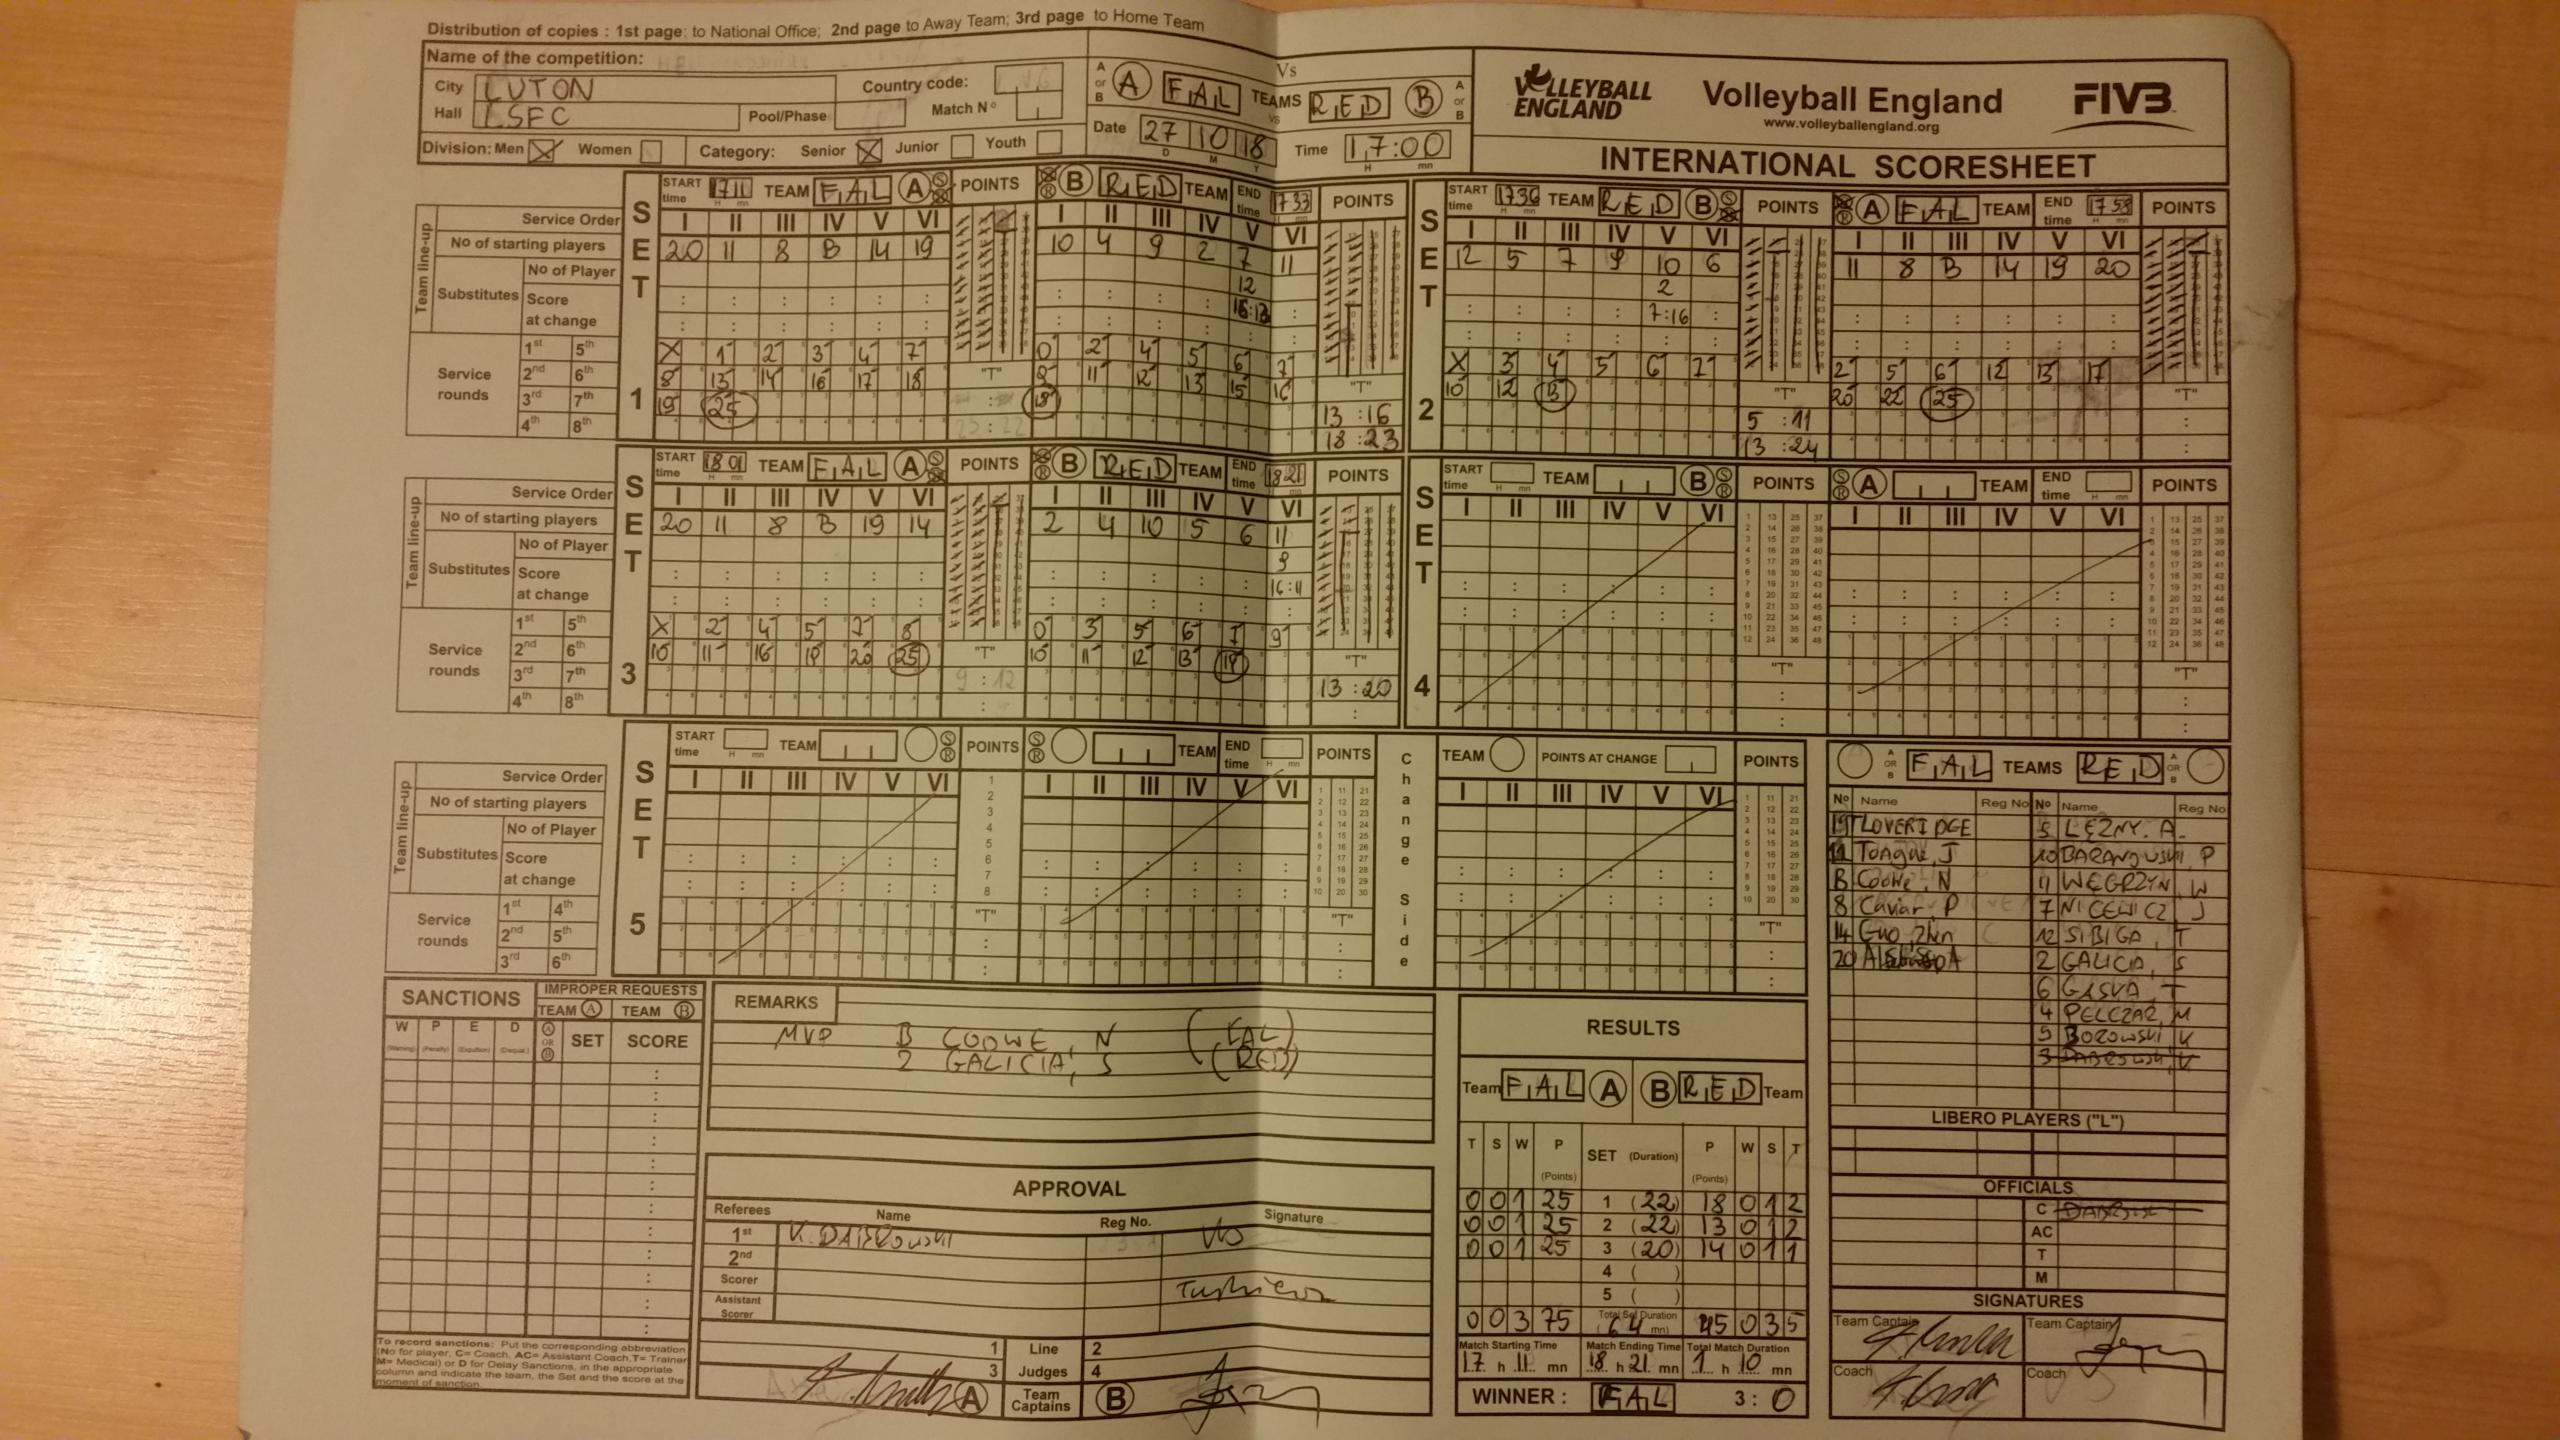 Distribution of copies : 1st page: to National Office; 2nd page to Away Team; 3rd page to Home Team
Name of the competition:
City LUTON Country code:
Hall LSFC Pool/Phase Match Nº
Division: Men X Women Category: Senior X Junior Youth
A or B A FAL TEAMS vs RED B A or B
Vs
Date 27 10 18 Time 17:00
D M Y H mn
VOLLEYBALL ENGLAND
Volleyball England
www.volleyballengland.org
FIVB
INTERNATIONAL SCORESHEET
SET 1
START time 1711 TEAM FAL A S R POINTS S R B RED TEAM END time 1733 POINTS
Service Order I II III IV V VI I II III IV V VI
No of starting players 20 11 8 B 14 19 10 4 9 2 7 11
Team line-up
Substitutes No of Player 12
Score at change 16:13
Service rounds
1st 5th X 1 2 3 4 7 0 2 4 5 6 7
2nd 6th 8 13 14 16 17 18 9 11 12 13 15 16
3rd 7th 19 25 18
4th 8th
"T" "T"
13 :16
18 :23
SET 2
START time 1736 TEAM RED B S R POINTS S R A FAL TEAM END time 1758 POINTS
I II III IV V VI I II III IV V VI
12 5 7 9 10 6 11 8 B 14 19 20
2
7:16
X 3 4 5 6 7 2 5 6 12 13 17
10 12 13 20 22 25
"T" "T"
5 :11
13 :24
SET 3
START time 1801 TEAM FAL A S R POINTS S R B RED TEAM END time 1821 POINTS
Service Order I II III IV V VI I II III IV V VI
No of starting players 20 11 8 B 19 14 2 4 10 5 6 11
Team line-up
Substitutes No of Player 9
Score at change 16:11
Service rounds
1st 5th X 2 4 5 7 8 0 3 5 6 7 9
2nd 6th 10 11 16 19 20 25 10 11 12 13
3rd 7th
4th 8th
"T" 9 : 12 "T" 13 :20
SET 4
START time TEAM B S R POINTS S R A TEAM END time POINTS
I II III IV V VI I II III IV V VI
"T" "T"
SET 5
START time TEAM S R POINTS S R TEAM END time POINTS
Service Order I II III IV V VI I II III IV V VI
No of starting players
Team line-up
Substitutes No of Player
Score at change
Service rounds
1st 4th
2nd 5th
3rd 6th
"T" "T"
Change Side
TEAM POINTS AT CHANGE POINTS
I II III IV V VI
"T"
A OR B FAL TEAMS RED A OR B
Nº Name Reg No Nº Name Reg No
19 LOVERIDGE 5 LĘZNY. A.
11 Tongue, J 10 BARANOWSKI, P
B Coowe, N 11 WĘGRZYN, W
8 Caviar, P 7 NICEWICZ, J
14 Guo, Zhen 12 SIBIGA, T
20 2 GALICIA, S
6 T
4 PELCZAR, M
9 BOROWSKI, K
3 DABROWSKI, K
LIBERO PLAYERS ("L")
OFFICIALS
C
AC
T
M
SIGNATURES
Team Captain Team Captain
Coach Coach
SANCTIONS
IMPROPER REQUESTS
TEAM A TEAM B
W P E D A OR B SET SCORE
(Warning) (Penalty) (Expulsion) (Disqual.)
To record sanctions: Put the corresponding abbreviation
(No for player, C= Coach, AC= Assistant Coach, T= Trainer
M= Medical) or D for Delay Sanctions, in the appropriate
column and indicate the team, the Set and the score at the
moment of sanction.
REMARKS
MVP B COOWE, N (FAL)
2 GALICIA, S (RED)
APPROVAL
Referees Name Reg No. Signature
1st K. DABROWSKI
2nd
Scorer
Assistant Scorer
1 Line 2
3 Judges 4
A Team Captains B
RESULTS
Team FAL A B RED Team
T S W P (Points) SET (Duration) P (Points) W S T
0 0 1 25 1 (22) 18 0 1 2
0 0 1 25 2 (22) 13 0 1 2
0 0 1 25 3 (20) 14 0 1 1
4 ( )
5 ( )
0 0 3 75 Total Set Duration (64 mn) 45 0 3 5
Match Starting Time Match Ending Time Total Match Duration
17 h 11 mn 18 h 21 mn 1 h 10 mn
WINNER : FAL 3 : 0